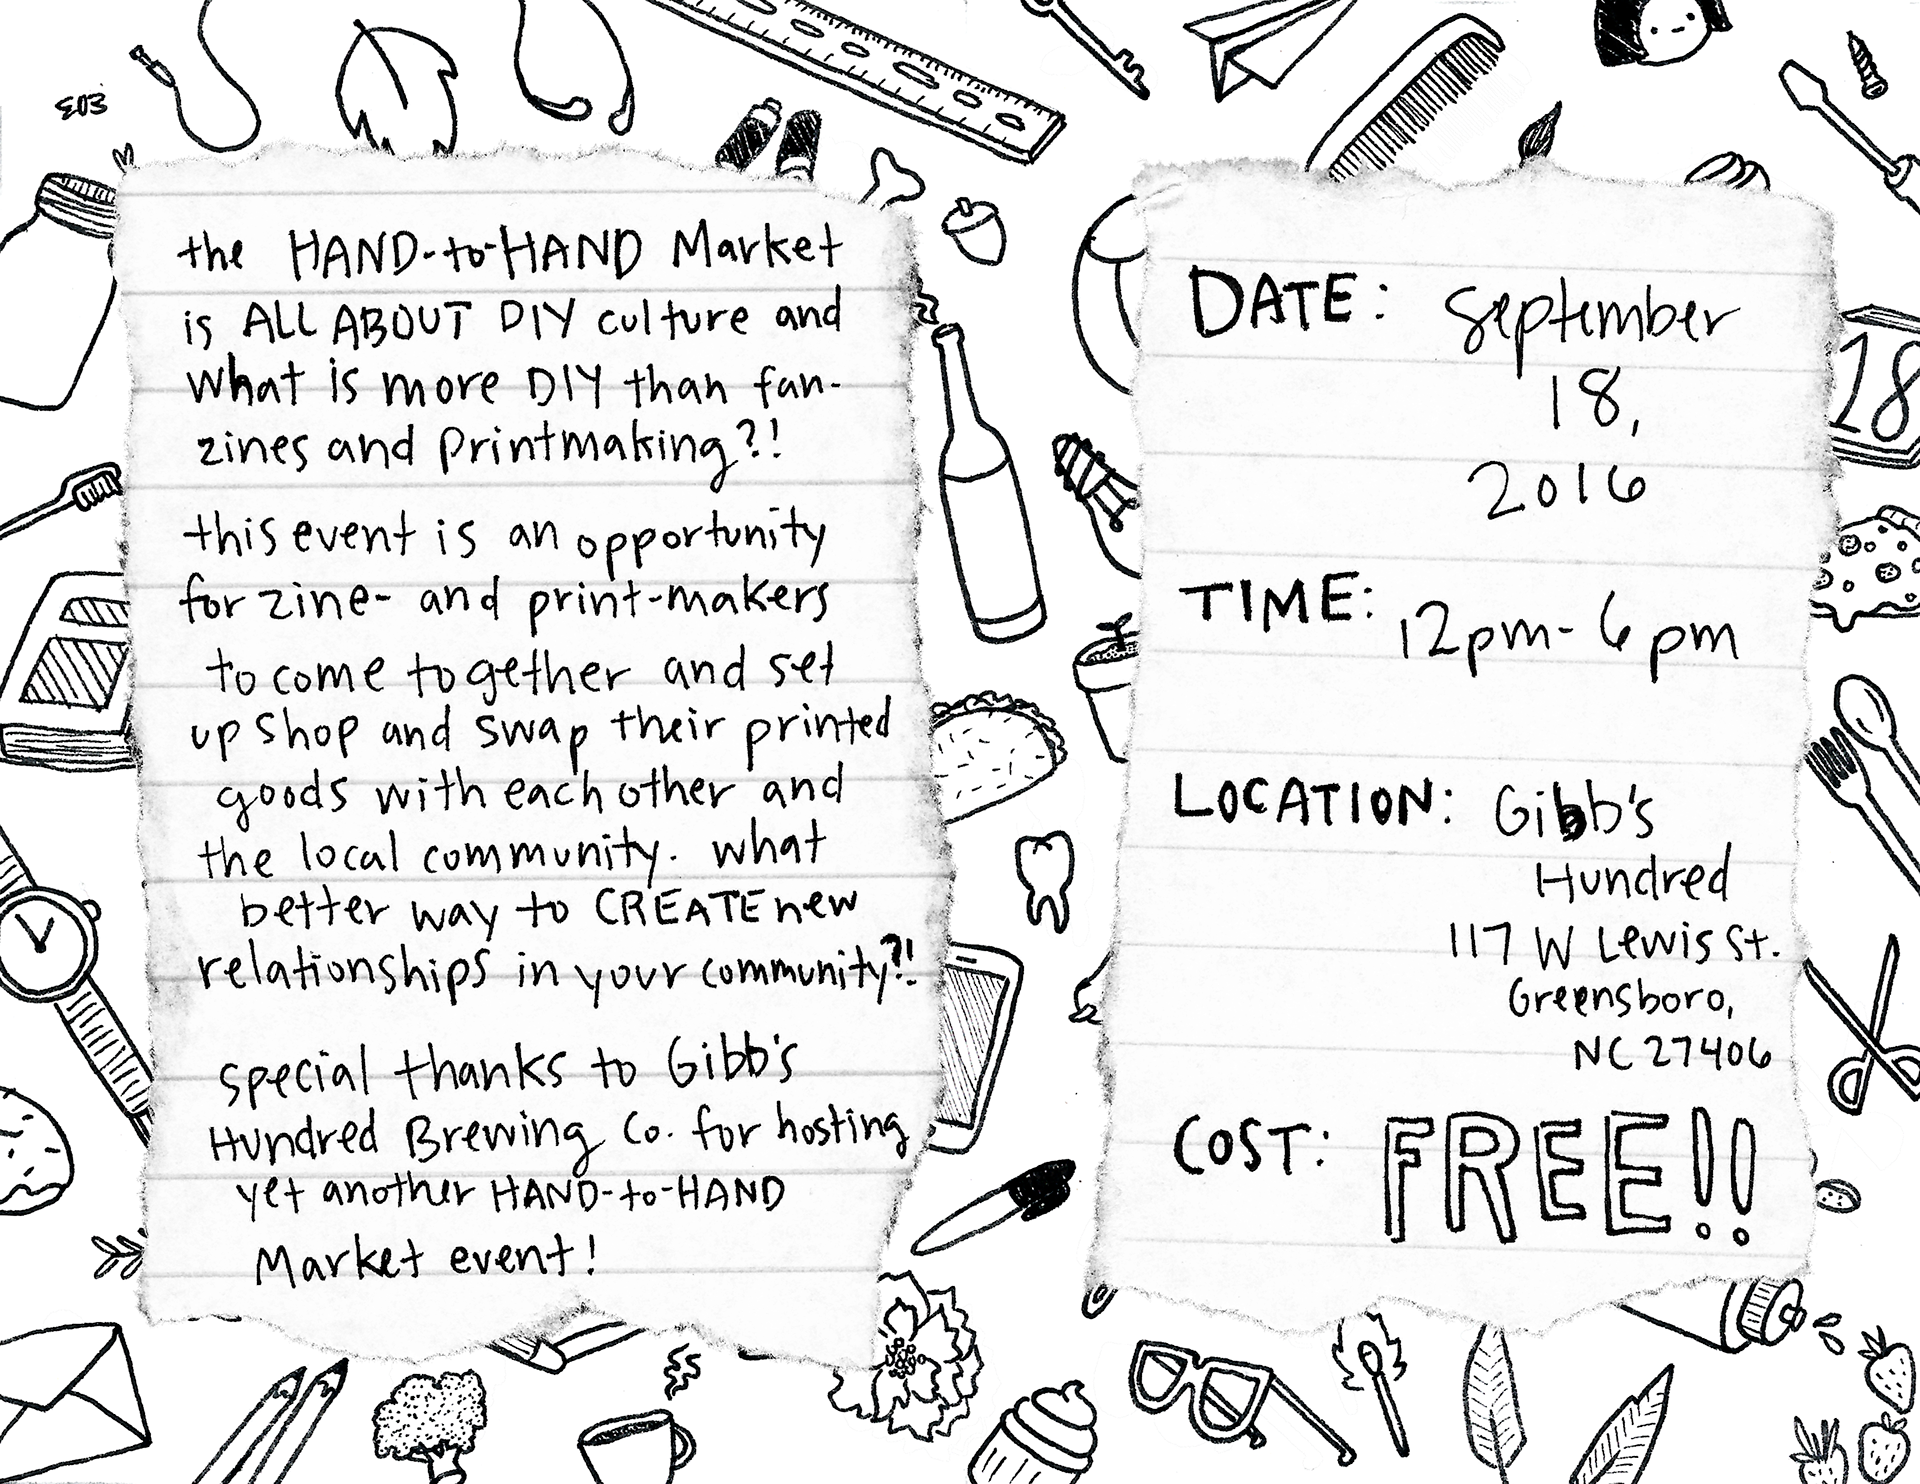 the HAND-to-HAND Market
is ALL ABOUT DIY culture and
what is more DIY than fan-
zines and printmaking?!
this event is an opportunity
for zine- and print-makers
to come together and set
up shop and swap their printed
goods with each other and
the local community. what
better way to CREATE new
relationships in your community?!
special thanks to Gibb's
Hundred Brewing Co. for hosting
yet another HAND-to-HAND
Market event!
DATE: September
18,
2016
TIME: 12pm-6pm
LOCATION: Gibb's
Hundred
117 W Lewis St.
Greensboro,
NC 27406
COST: FREE!!
18